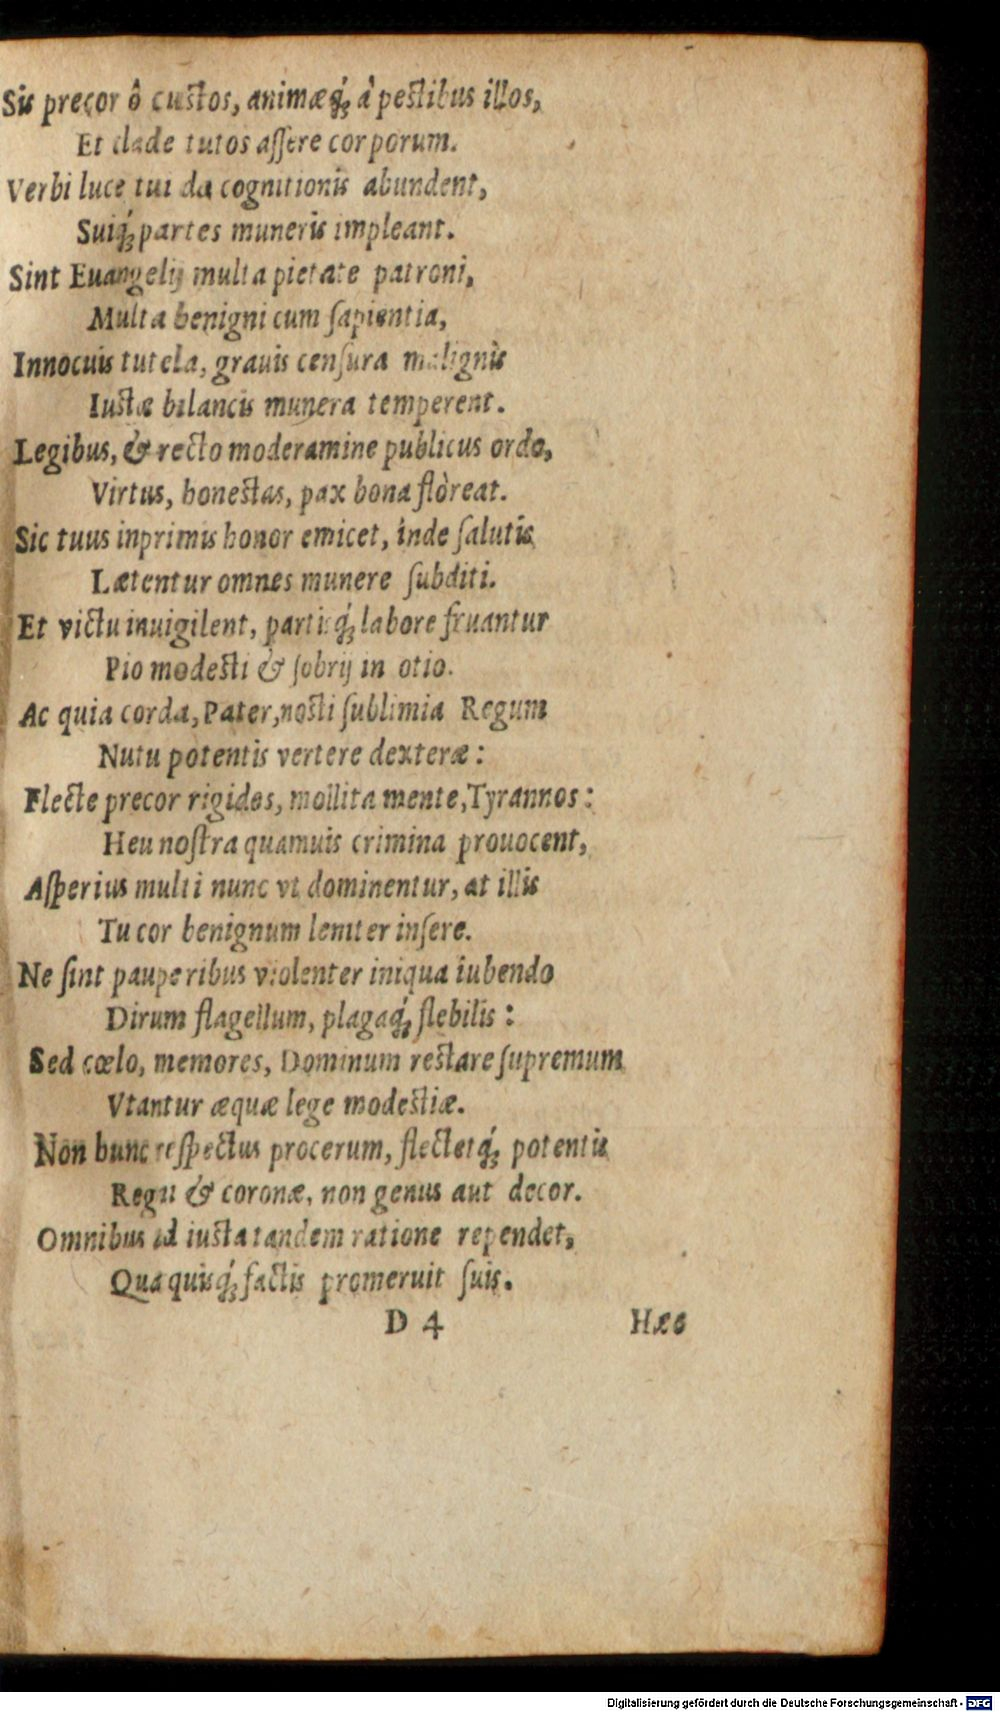 Sis precor ô custos, animæq́; à pestibus illos,
Et clade tutos aſſere corporum.
Verbi luce tui da cognitionis abundent,
Suiq́; partes muneris impleant.
Sint Euangelij multa pietate patroni,
Multa benigni cum ſapientia,
Innocuis tutela, grauis cenſura malignis
Iustæ bilancis munera temperent.
Legibus, & recto moderamine publicus ordo,
Virtus, honestas, pax bona flòreat.
Sic tuus inprimis honor emicet, inde ſalutis
Lætentur omnes munere ſubditi.
Et victu inuigilent, partisq́; labore fruantur
Pio modesti & ſobrij in otio.
Ac quia corda, Pater, nosti ſublimia Regum
Nutu potentis vertere dexteræ:
Flecte precor rigidos, mollita mente, Tyrannos:
Heu noſtra quamuis crimina prouocent,
Aſperius multi nunc vt dominentur, at illis
Tu cor benignum leniter inſere.
Ne ſint pauperibus violenter iniqua iubendo
Dirum flagellum, plagaq́; flebilis:
Sed cœlo, memores, Dominum restare ſupremum
Vtantur æquæ lege modestiæ.
Non hunc reſpectus procerum, flectetq́; potentis
Regni & coronæ, non genus aut decor.
Omnibus id iusta tandem ratione rependet,
Qua quisq́; factis promeruit ſuis.
D 4 Hæc
Digitalisierung gefördert durch die Deutsche Forschungsgemeinschaft - DFG